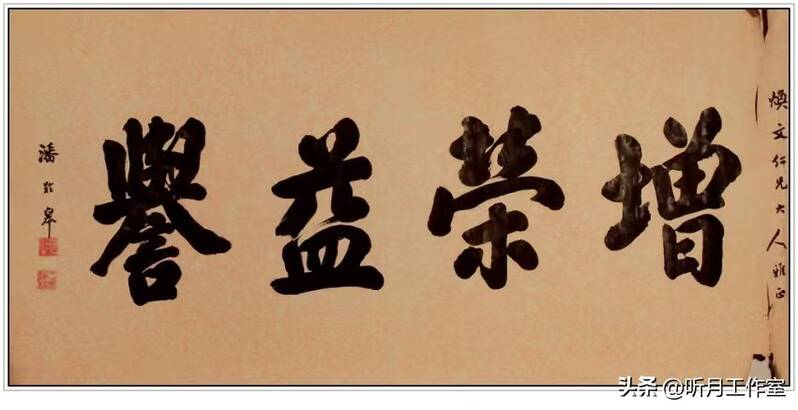 煥文仁兄大人雅正
增榮益譽
潘齡皋
头条 @听月工作室